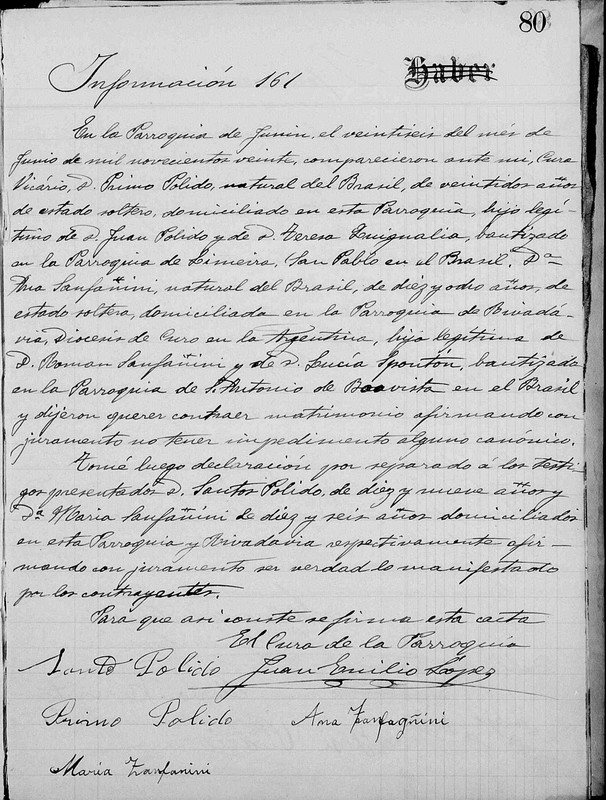 80
Haber
Información 161
En la Parroquia de Junin, el veintiseis del mes de
Junio de mil novecientos veinte, comparecieron ante mi, Cura
Vicário, D. Primo Polido, natural del Brasil, de veintidos años
de estado soltero, domiciliado en esta Parroquia, hijo legí-
timo de D. Juan Polido y de D. Teresa bautizado
en la Parroquia de Limeira, San Pablo en el Brasil. Dª
Ana Sanfañini, natural del Brasil, de diez y ocho años, de
estado soltera, domiciliada en la Parroquia de Rivadá-
via, Diocesis de Cuyo en la Argentina, hija legítima de
D. Roman Sanfañini y de D. Lucía Spontón, bautizada
en la Parroquia de S. Antonio de Boavista en el Brasil
y dijeron querer contraer matrimonio afirmando con
juramento no tener impedimento alguno canónico.
Tomé luego declaración por separado á los testi-
gos presentados D. Santos Polido, de diez y nueve años y
Dª Maria Sanfañini de diez y seis años domiciliados
en esta Parroquia y Rivadavia respectivamente afir-
mando con juramento ser verdad lo manifestado
por los contrayentes.
Para que asi conste se firma esta acta
El Cura de la Parroquia
Polido Juan Emilio López
Primo Polido Ana Zanfagñini
Maria Zanfanini